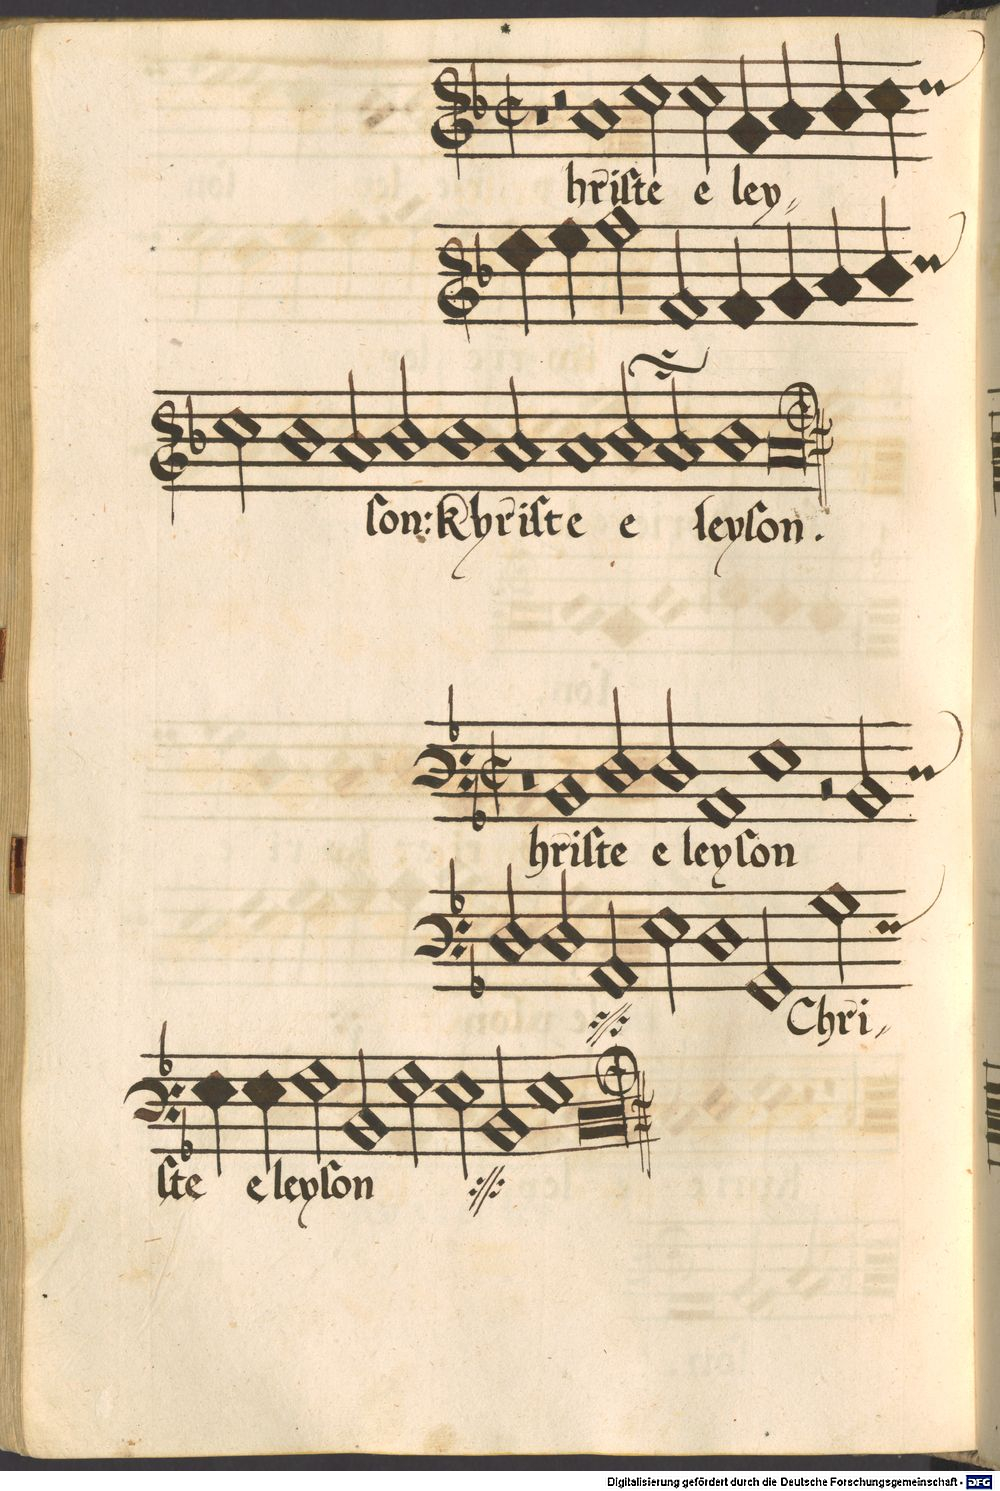 hr̄iſte e ley
ſon: khr̄iſte e leyſon.
hr̄iſte e leyſon
Chr̄i
ſte eleyſon
Digitalisierung gefördert durch die Deutsche Forschungsgemeinschaft - DFG